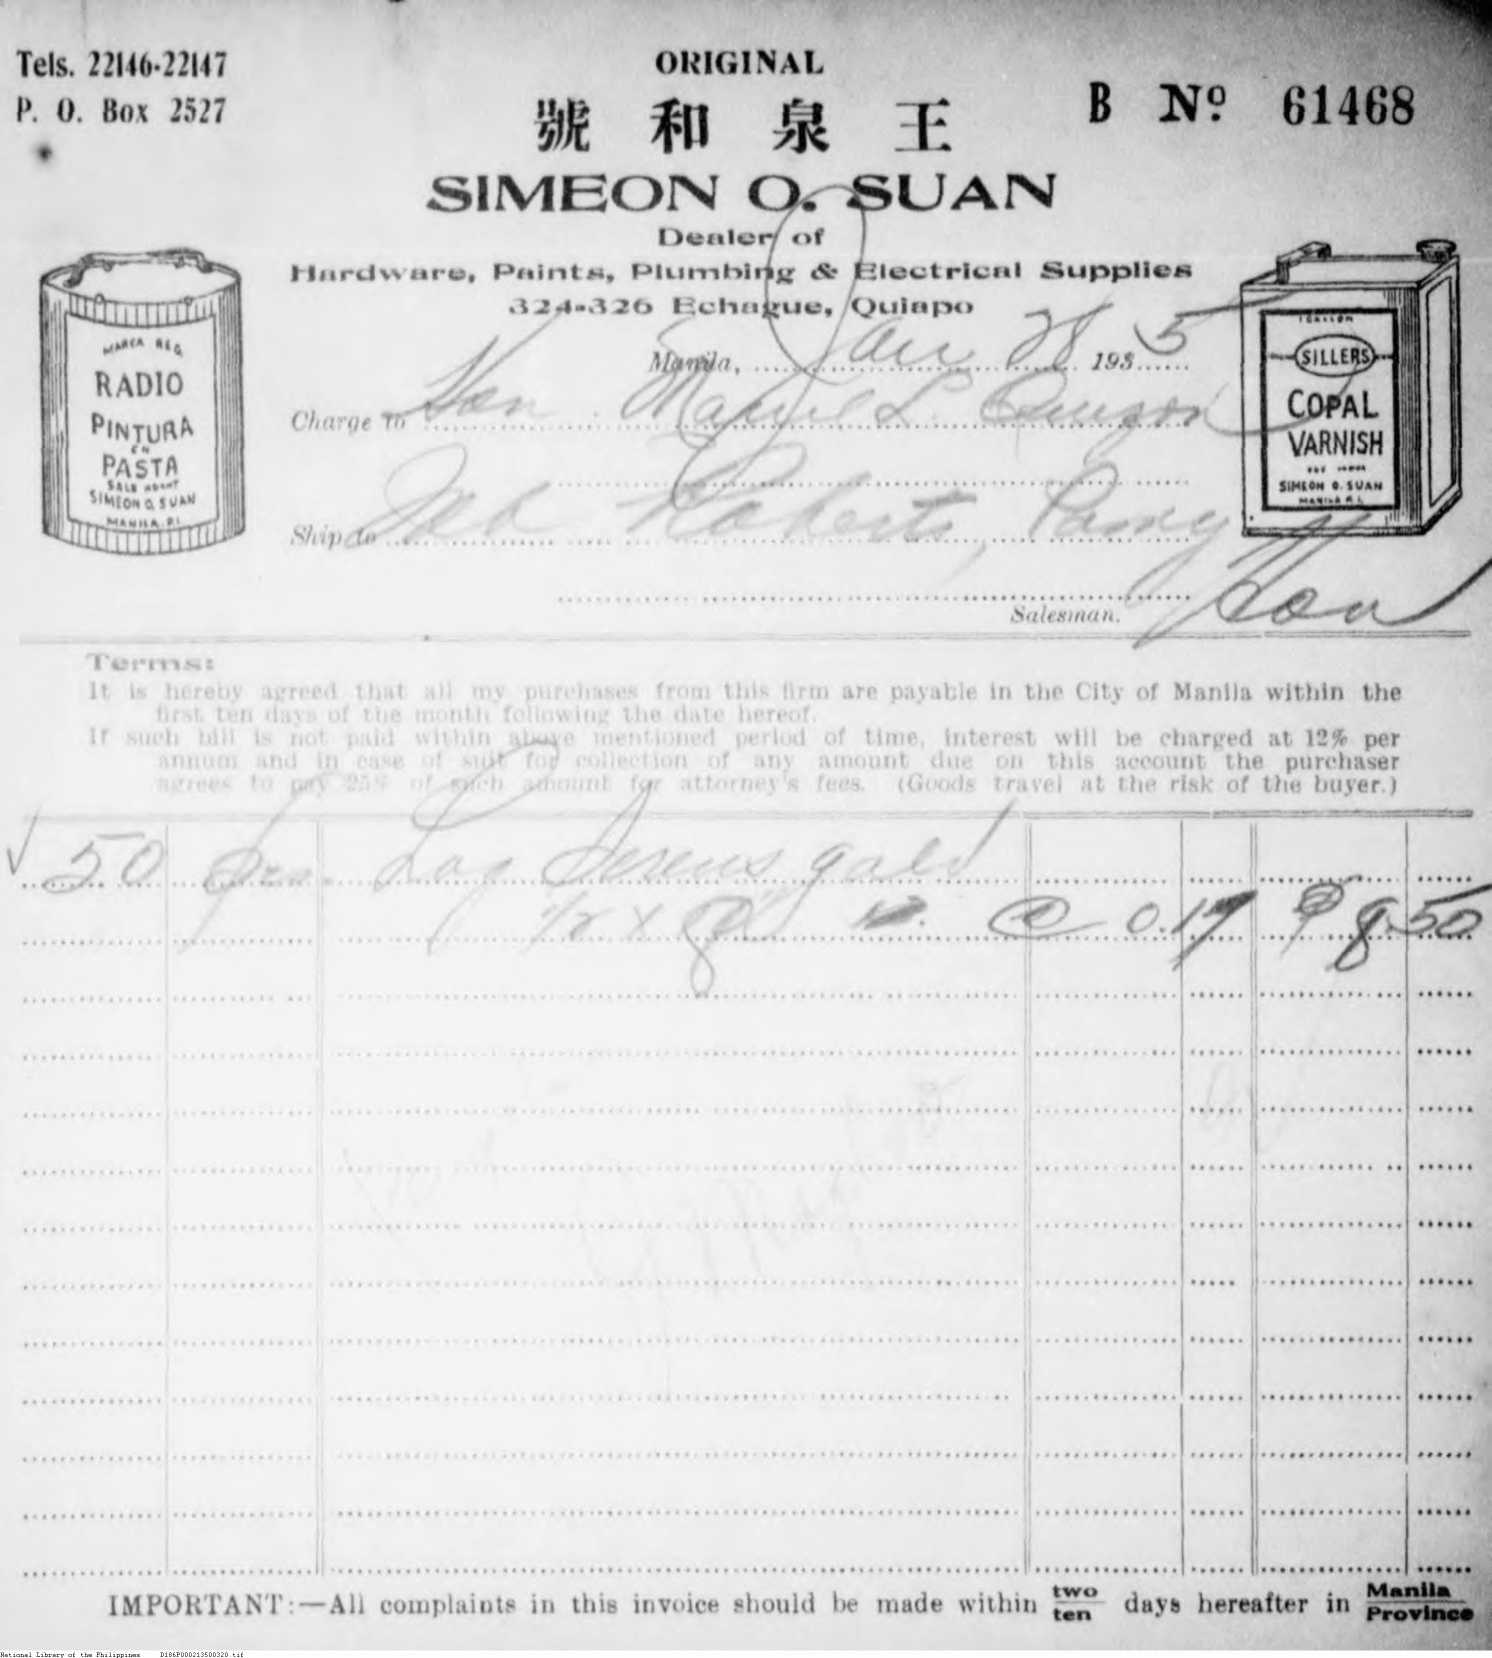 Tels. 22146-22147
P. O. Box 2527
ORIGINAL
B Nº 61468
號 和 泉 王
SIMEON O. SUAN
Dealer of
Hardware, Paints, Plumbing & Electrical Supplies
324-326 Echague, Quiapo
MARCA REG.
RADIO
PINTURA
EN
PASTA
SALE AGENT
SIMEON O. SUAN
MANILA. P.I.
1 GALLON
SILLERS
COPAL
VARNISH
SIMEON O. SUAN
MANILA P.I.
Manila, Jan 28 1935
Charge to Hon. Manuel L. Quezon
Ship to Roberts, Pasay
Salesman.
Terms:
It is hereby agreed that all my purchases from this firm are payable in the City of Manila within the
first ten days of the month following the date hereof.
If such bill is not paid within above mentioned period of time, interest will be charged at 12% per
annum and in case of suit for collection of any amount due on this account the purchaser
agrees to pay 25% of such amount for attorney's fees. (Goods travel at the risk of the buyer.)
50 pcs. Lag Screws galv
1/2 x 8 @ 0.17 ₱ 8.50
IMPORTANT:—All complaints in this invoice should be made within two/ten days hereafter in Manila/Province
National Library of the Philippines D186P000213500320.tif